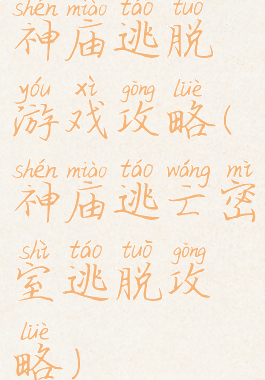 shén miào táo tuō
神庙逃脱
yóu xì gōng lüè
游戏攻略(
shén miào táo wáng mì
神庙逃亡密
shì táo tuō gōng
室逃脱攻
lüè
略)